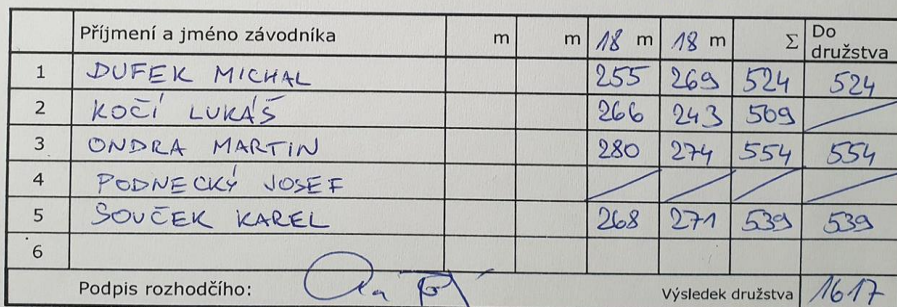 Příjmení a jméno závodníka m m 18 m 18 m Σ Do družstva
1 DUFEK MICHAL 255 269 524 524
2 KOČÍ LUKÁŠ 266 243 509
3 ONDRA MARTIN 280 274 554 554
4 PODNECKÝ JOSEF
5 SOUČEK KAREL 268 271 539 539
6
Podpis rozhodčího: Výsledek družstva 1617